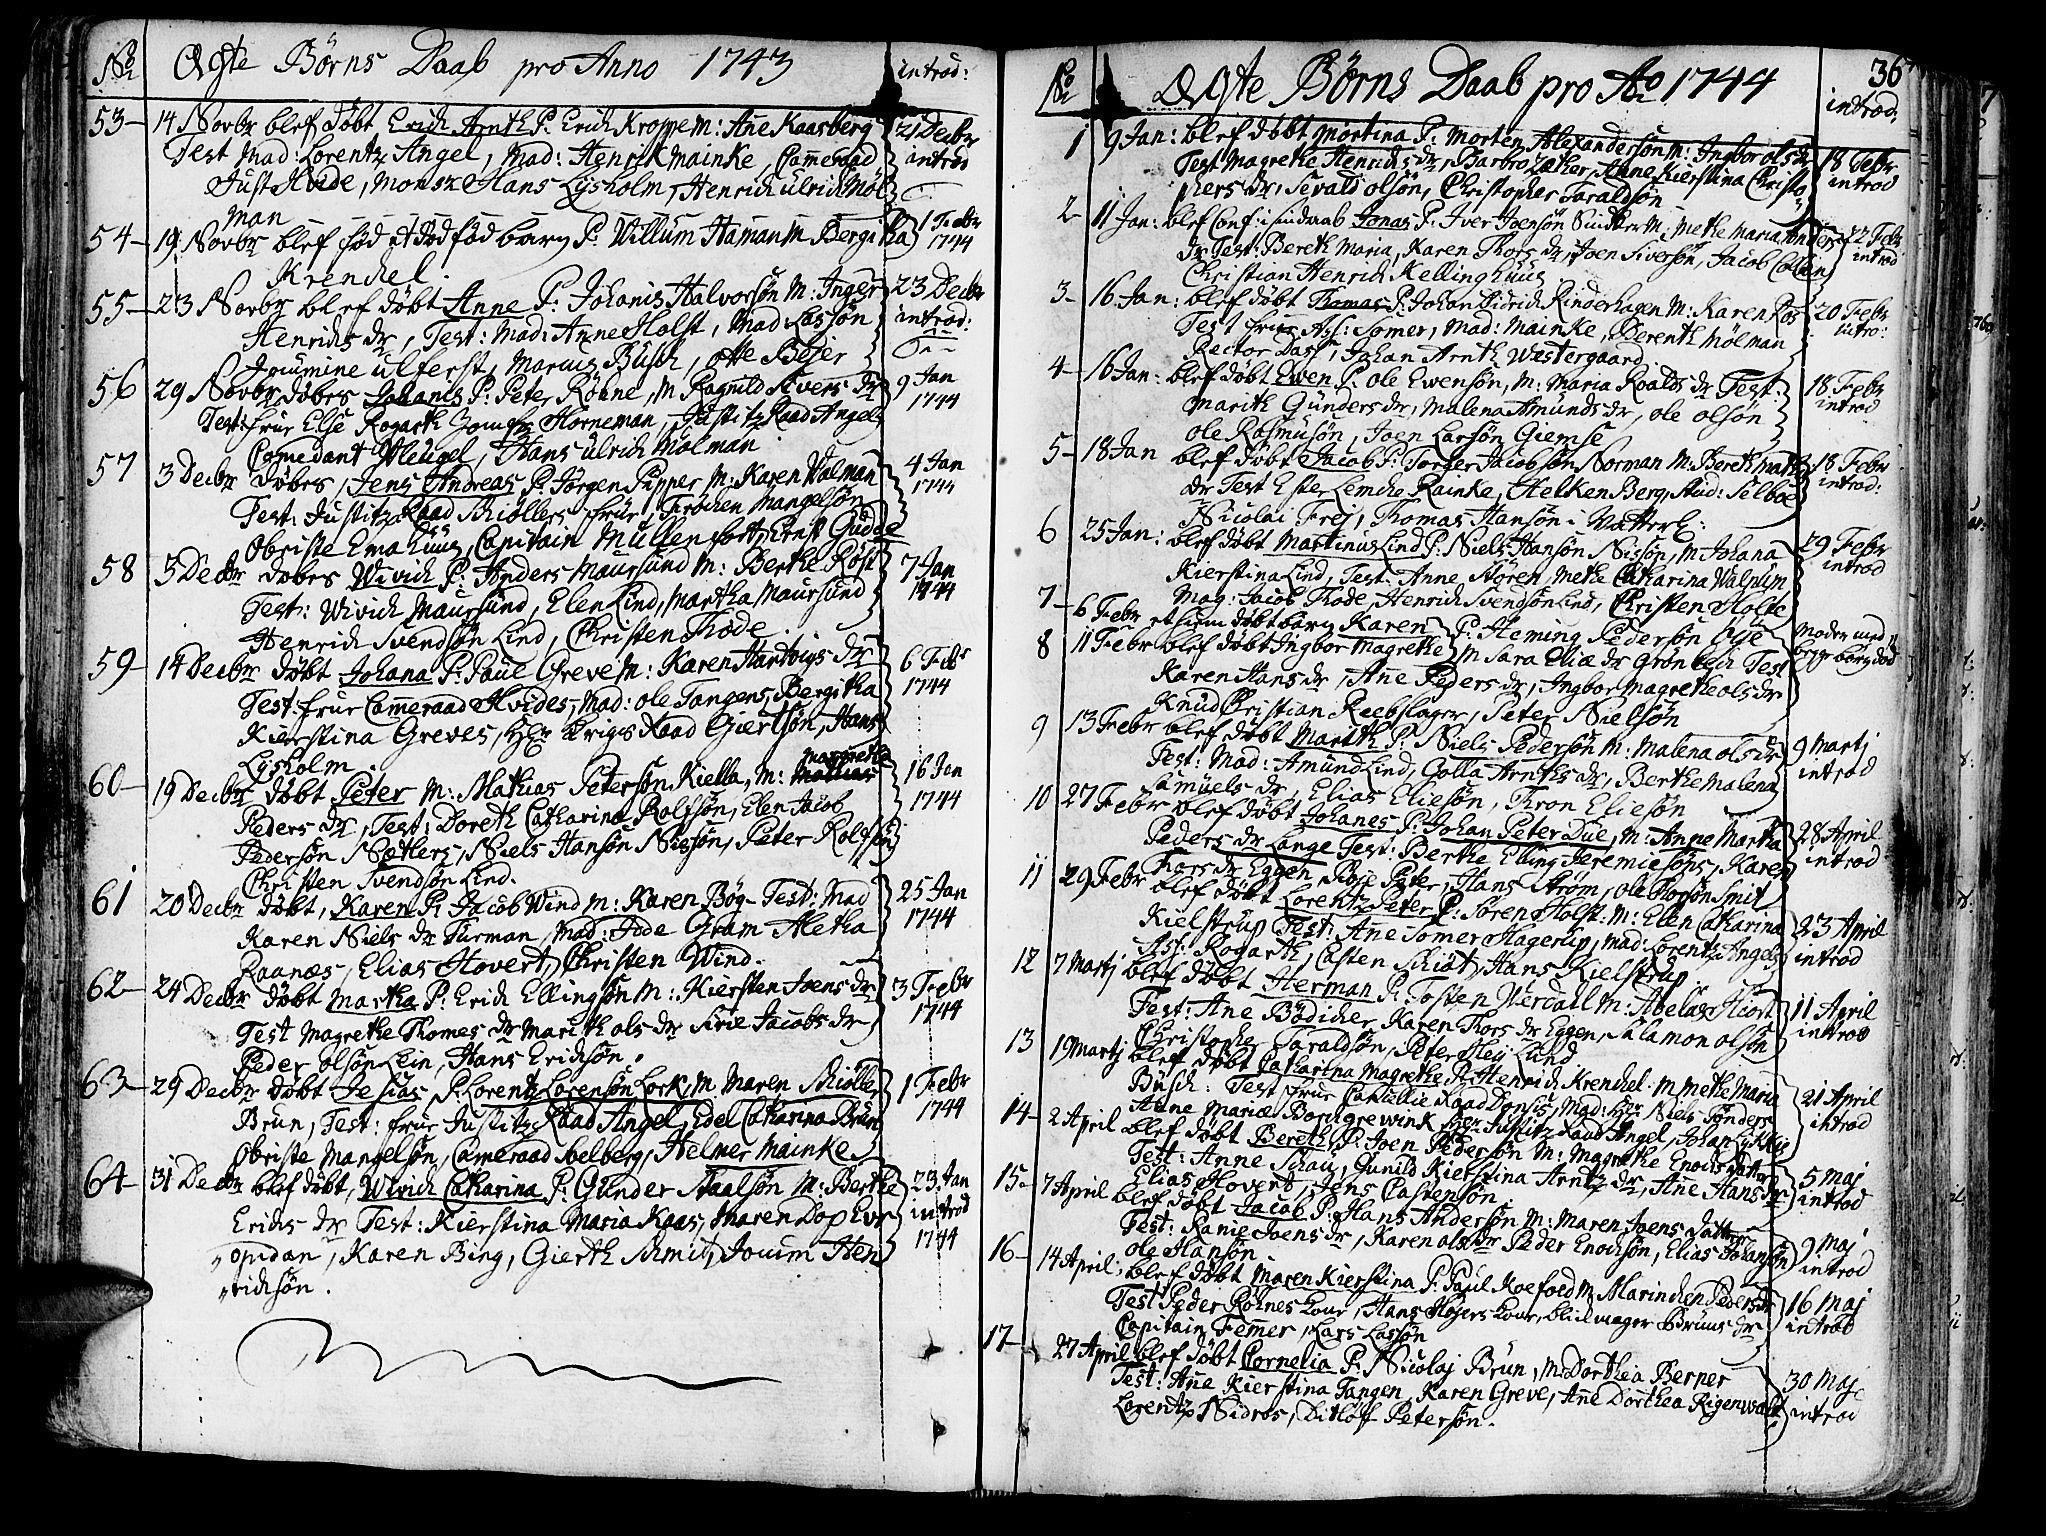 No Ægte Börns Daab pro Anno 1743 introd:
53 14 Novbr blef döbt Erich Arnth P. Erich Kroppe M: Ane Kaasberg 21 Decbr
Test Mad: Lorentz Angel, Mad: Henrik Mainke, Cameraad introd
Just Hvide, Monsr Hans Lysholm, Henrich Ulrich Möl
man
54 19 Novbr blef föd et död föd barn P. Willum Haman M Bergitha 1 Febr
1744
Krenckel.
55 23 Novbr blef döbt Anne P. Johanis Halvorsön M: Inger 23 Decbr
Henrichs dr, Test: Mad: Anne Holst, Mad Lassön introd:
Joumine Ulferst, Marcus Busch, Otte Bejer
56 29 Novbr döbes Johanis P. Peter Röhne, M Ragnild Sivers dr 9 Jan
Test: frue Else Rogarth Jomfr Horneman, Justitz Raad Angels 1744
Comedant Vleugel, Hans Ulrich Mölman
57 3 Decbr döbes, Jens Andreas P. Jörgen Pipper M: Karen Walman 4 Jan
Test: Justitz Raad Schiöllers frue, Fröchen Mangelsön 1744
Obriste Emahuus, Capitain Mullenfort, Ernst Gudde
58 5 Decbr döbes Wivich P: Anders Maursund M: Berthe Röst 7 Jan
Test: Wivich Maursund, Elen Lind, Martha Maursund 1744
Henrich Svendsön Lind, Christen Thode.
59 14 Decbr döbt Johana P. Paul Greve M: Karen Hartvigs dr 6 Febr
Test: frue Cameraad Hvides, Mad: Ole Tangens, Bergitha 1744
Kierstina Greves, Hr Krigs Raad Giertsön, Hans
Lysholm. Margrethe
60 19 Decbr döbt Peter M: Mathias Petersön Kiella, M: 16 Jan
Peders dr, Test: Doreth Catharina Rolfsön, Elen Jacob 1744
Pedersön Nætlers, Niels Hansön Nissön, Peter Rolfsön
Christen Svendsön Lind.
61 20 Decbr döbt, Karen P. Jacob Wind M: Karen Bög Test: Mad 25 Jan
Karen Niels dr Furman, Mad: Tode Gram Aletha 1744
Raanæs, Elias Hovert, Christen Wind.
62 24 Decbr döbt Martha P: Erich Ellingsön M: Kiersten Joens dr 3 Febr
Test Magrethe Thomes dr Marith Ols dr Sirie Jacobs dr 1744
Peder Olsön Lein, Hans Erichsön.
63 29 Decbr döbt Jesias P. Lorentz Lorensön Lork, M Maren Schiölle 1 Febr
Brun, Test: frue Justitz Raad Angel, Edel Catharina Brun 1744
Obriste Mangelsön, Cameraad Selberg, Helmer Mainke
64 31 Decbr blef döbt, Wivich Catharina P. Gunder Staalsön M: Berthe 23 Jan
Erichs dr Test: Kierstina Maria Kaas, Maren Dop introd
Karen Bing, Gierth Schmit, Jouim Hen 1744
richsön.
No Ægte Börns Daab pro Ao 1744 36
introd;
1 9 Jan: blef döbt Mortina P. Morten Alexandersön M: Ingbor Ols dr 18 Febr
Test Magrethe Henrichs dr, Barbro Zæther, Anne Kierstina Christo introd
phers dr, Sevald Olsön, Christopher Taraldsön
2 11 Jan: blef Conf: i sin daab Jonas P. Iver Joensön M: Methe Maria 22 Febr
dr Test: Bereth Maria, Karen Thors dr, Joen Siversön, Jacob Collin introd
Christian Henrich Kellinghuus
3 16 Jan: blef döbt Thomas P. Johan Didrich Rinderhagen M: Karen Ros 20 Febr
Test frue Ass: Somer, Mad: Mainke, Berenth Mölman intro:
Rector Dass, Johan Arnth Westergaard
4 16 Jan: blef döbt Ewen P. Ole Ewensön, M: Maria Roalds dr Test: 18 Febr
Marith Gunders dr, Malena Amunds dr, Ole Olsön introd
Ole Rasmusön, Joen Larsön Giemse
5 18 Jan blef döbt Jacob P. Torger Jacobsön Norman M: Bereth 18 Febr
dr Test Ester Lemche Rainke, Helken Berg, Stud: Selboe introd:
Nicolai Frej, Thomas Hansön i
6 25 Jan: blef döbt Martinus Lind P. Niels Hansön Nissön, M: Johana 29 Febr
Kierstina Lind, Test: Anne Stören, Methe Catharina Walpum introd
Mag: Jacob Thode, Henrich Svendsön Lind, Christen Holte
7 6 Febr et hiem döbt barn Karen P: Heming Pedersön Oye Moder med
8 11 Febr blef döbt Ingbor Magrethe M Sara Eliæ dr Grönbech Test begge börn död
Karen Hans dr, Ane Peders dr, Ingbor Magrethe Ols dr
Knud Christian Reebslager, Peter Nielsön
9 13 Febr blef döbt Marith P. Niels Pedersön M: Malena Ols dr 9 Martj
Test: Mad: Amund Lind, Golla Arnths dr, Berthe Malena introd
Samuels dr, Elias Eliesön, Thron Eliesön
10 27 Febr blef döbt Johanes P. Johan Peter Due, M: Anne Martha 28 April
Peders dr Lange Test: Berthe Elling Jeremiesöns, Karen introd
Thors dr Eggen, Hans Ström, Ole Smit
11 29 Febr blef döbt Lorentz Peter P. Sören Holst. M: Elen Catharina 23 April
Kielstrup Test: Ane Somer Hagerup, Mad: Lorentz Angels introd
Ass: Rogarth, Casten Schiöt, Hans Kielstrup
12 7 Martj blef döbt Herman P. Tosten Werdall M: Abelas Hiort 11 April
Test: Ane Bödicher Karen Thors dr Eggen, Salamon Olsön introd
Christopher Taraldsön, Peter Lund
13 19 Martj blef döbt Catharina Magrethe P. Henrich Krenckel M Methe Maria 21 April
Busch. Test frue Cancellie Raad Mad: Hr Niels Sönder introd
Anne Mariæ Borchgrewink Hr Justitz Raad Angel, Johan
14 2 April blef döbt Bereth P. Joen Pedersön M: Magrethe Enochs datter 5 Maj
Test: Anne Schau, Gunild Kierstina Arntz dr, Ane Hans dr introd
Elias Hovert, Jens Castensön
15 7 April blef döbt Jacob P. Hans Andersön M: Maren Joens datter 9 Maj
Test: Ranie Joens dr, Karen Ols dr Peder Enochsön, Elias Johansön introd
Ole Hansön
16 14 April: blef döbt Maren Kierstina P. Paul Koefoed M Marinchen Peders dr 16 Maj
Test Peder Röhnes Kone, Hans Höjers Kone, Blichmager Bruns dr introd
Capitain Femer, Lars Lassön
17 27 April blef döbt Cornelia P. Nicolaj Brun, M: Dorthea Berner 30 Maj
Test: Ane Kierstina Tangen, Karen Greve, Ane Dorthea Rigenwald introd
Lorentz Nidros, Ditlöff Petersön.